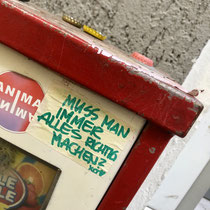 ANIMA
ANIMA
MUSS MAN
IMMER
ALLES RICHTIG
MACHEN?